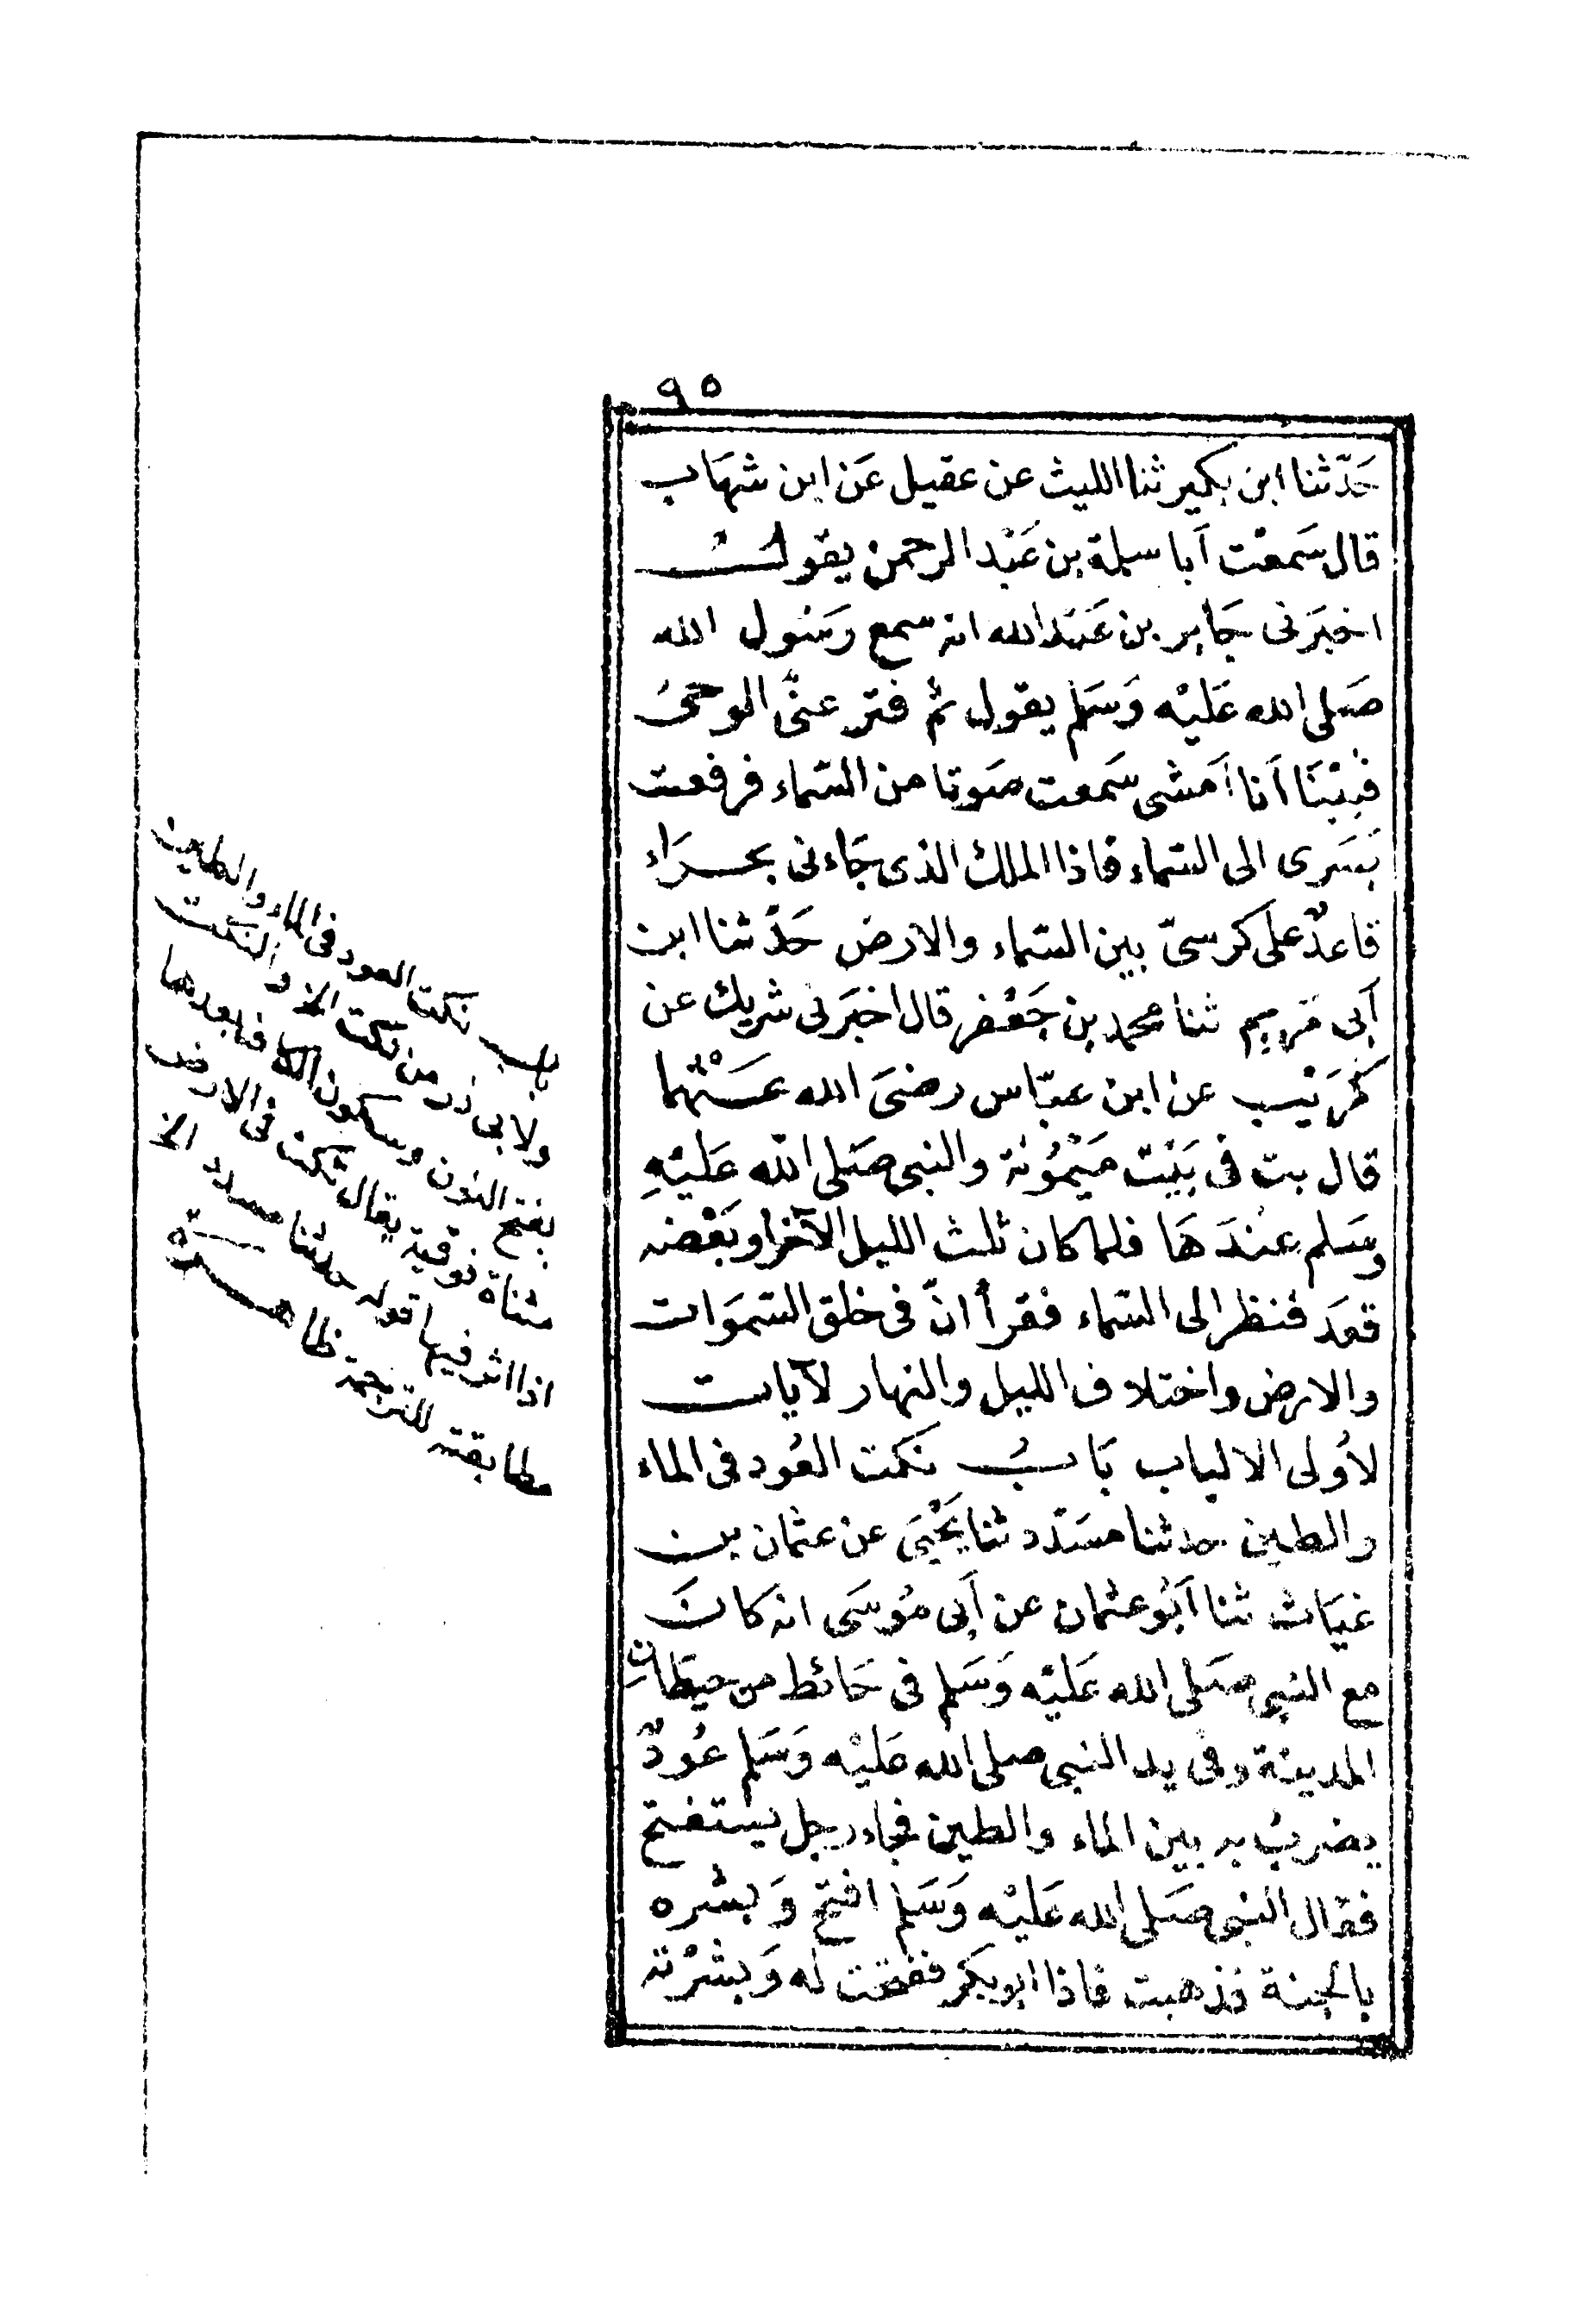 ٩٥
حَدّثنا ابن بكير ثنا الليث عن عقيل عَن ابن شهَاب
قال سَمعْت اَبا سلمة بن عَبْد الرحمن يقول
اخبَرنى جَابر بن عَبْد الله انه سمع رَسُول الله
صَلى الله عَليْه وَسَلم يقول ثم فتر عنّى الوحىُ
فبيْنَا اَنا اَمشى سَمعت صَوتا من السّماء فرفعت
بَصَرى الى السّماء فاذا الملك الذى جَاءنى بحرَاء
قاعدٌ على كرسىّ بين السّماء والارض حَدّثنا ابن
اَبى مَريم ثنا محمد بن جَعْفر قال اخبَرنى شريك عن
كُرَيْب عن ابن عبّاس رضىَ الله عَنْهما
قال بت فى بَيْت مَيْمُونة والنبى صَلى الله عَليْهِ
وسَلم عنْدَهَا فلما كان ثلث الليل الآخر او بَعْضه
قعَد فنظر الى السّماء فقرأ انّ فى خلق السّموَات
والارض واختلاف الليل والنهار لآيات
لاُولى الالباب بَابُ نَكت العُود فى الماء
والطين حدثنا مسَدّد ثنا يَحْيَى عن عثمان بن
غيَاث ثنا اَبُو عثمان عن اَبى مُوسَى انه كانَ
مع النبى صَلى الله عَليْه وَسَلم فى حَائط من حيطَانِ
المدينة وفى يد النبى صلى الله عَليْه وَسَلم عُودٌ
يضربُ به بين الماء والطين فجاء رجل يسْتفتح
فقال النبى صَلى الله عَليْه وَسَلم افتح وَبشره
بالجنة فذهبت فاذا ابو بكر ففتحت له وَبشرْته
باب نكت العود فى الماء والطين
ولابى ذر من نكت الخ والنكت
بفتح النون وسكون الكاف بعدها
مثناة فوقية يقال نكت فى الارض
اذا اثر فيها قوله حدثنا مسدد الخ
مطابقته للترجمة ظاهرة